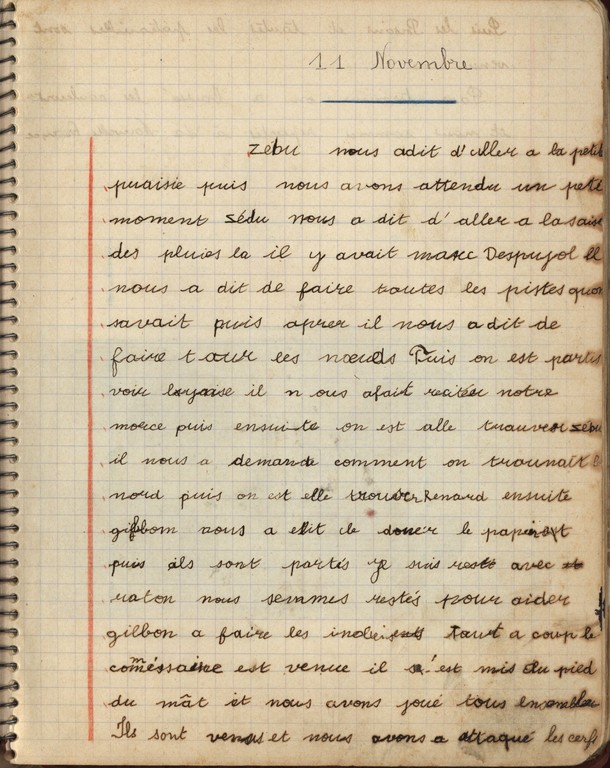 11 Novembre
zébu nous adit d'aller a la petit
praisie puis nous avons attendu un peti
moment zédu nous a dit d'aller a la
des pluies la il y avait marc Despujol Il
nous a dit de faire toutes les pistes quon
savait puis aprer il nous adit de
faire tour les nœuds Puis on est partis
voir il n ous afait reciter notre
morce puis ensuite on est alle trouver zébu
il nous a demande comment on trounait l
nord puis on est elle trouver Renard ensuite
gibbom nous a dit de doner le
puis ils sont partés je suis resté avec
raton nous semmes restés pour aider
gilbon a faire les tout a coup le
comméssaire est venue il s'est mis du pied
du mât et nous avons joué tous ensemble
Ils sont venus et nous avons a attaqué les cerfs